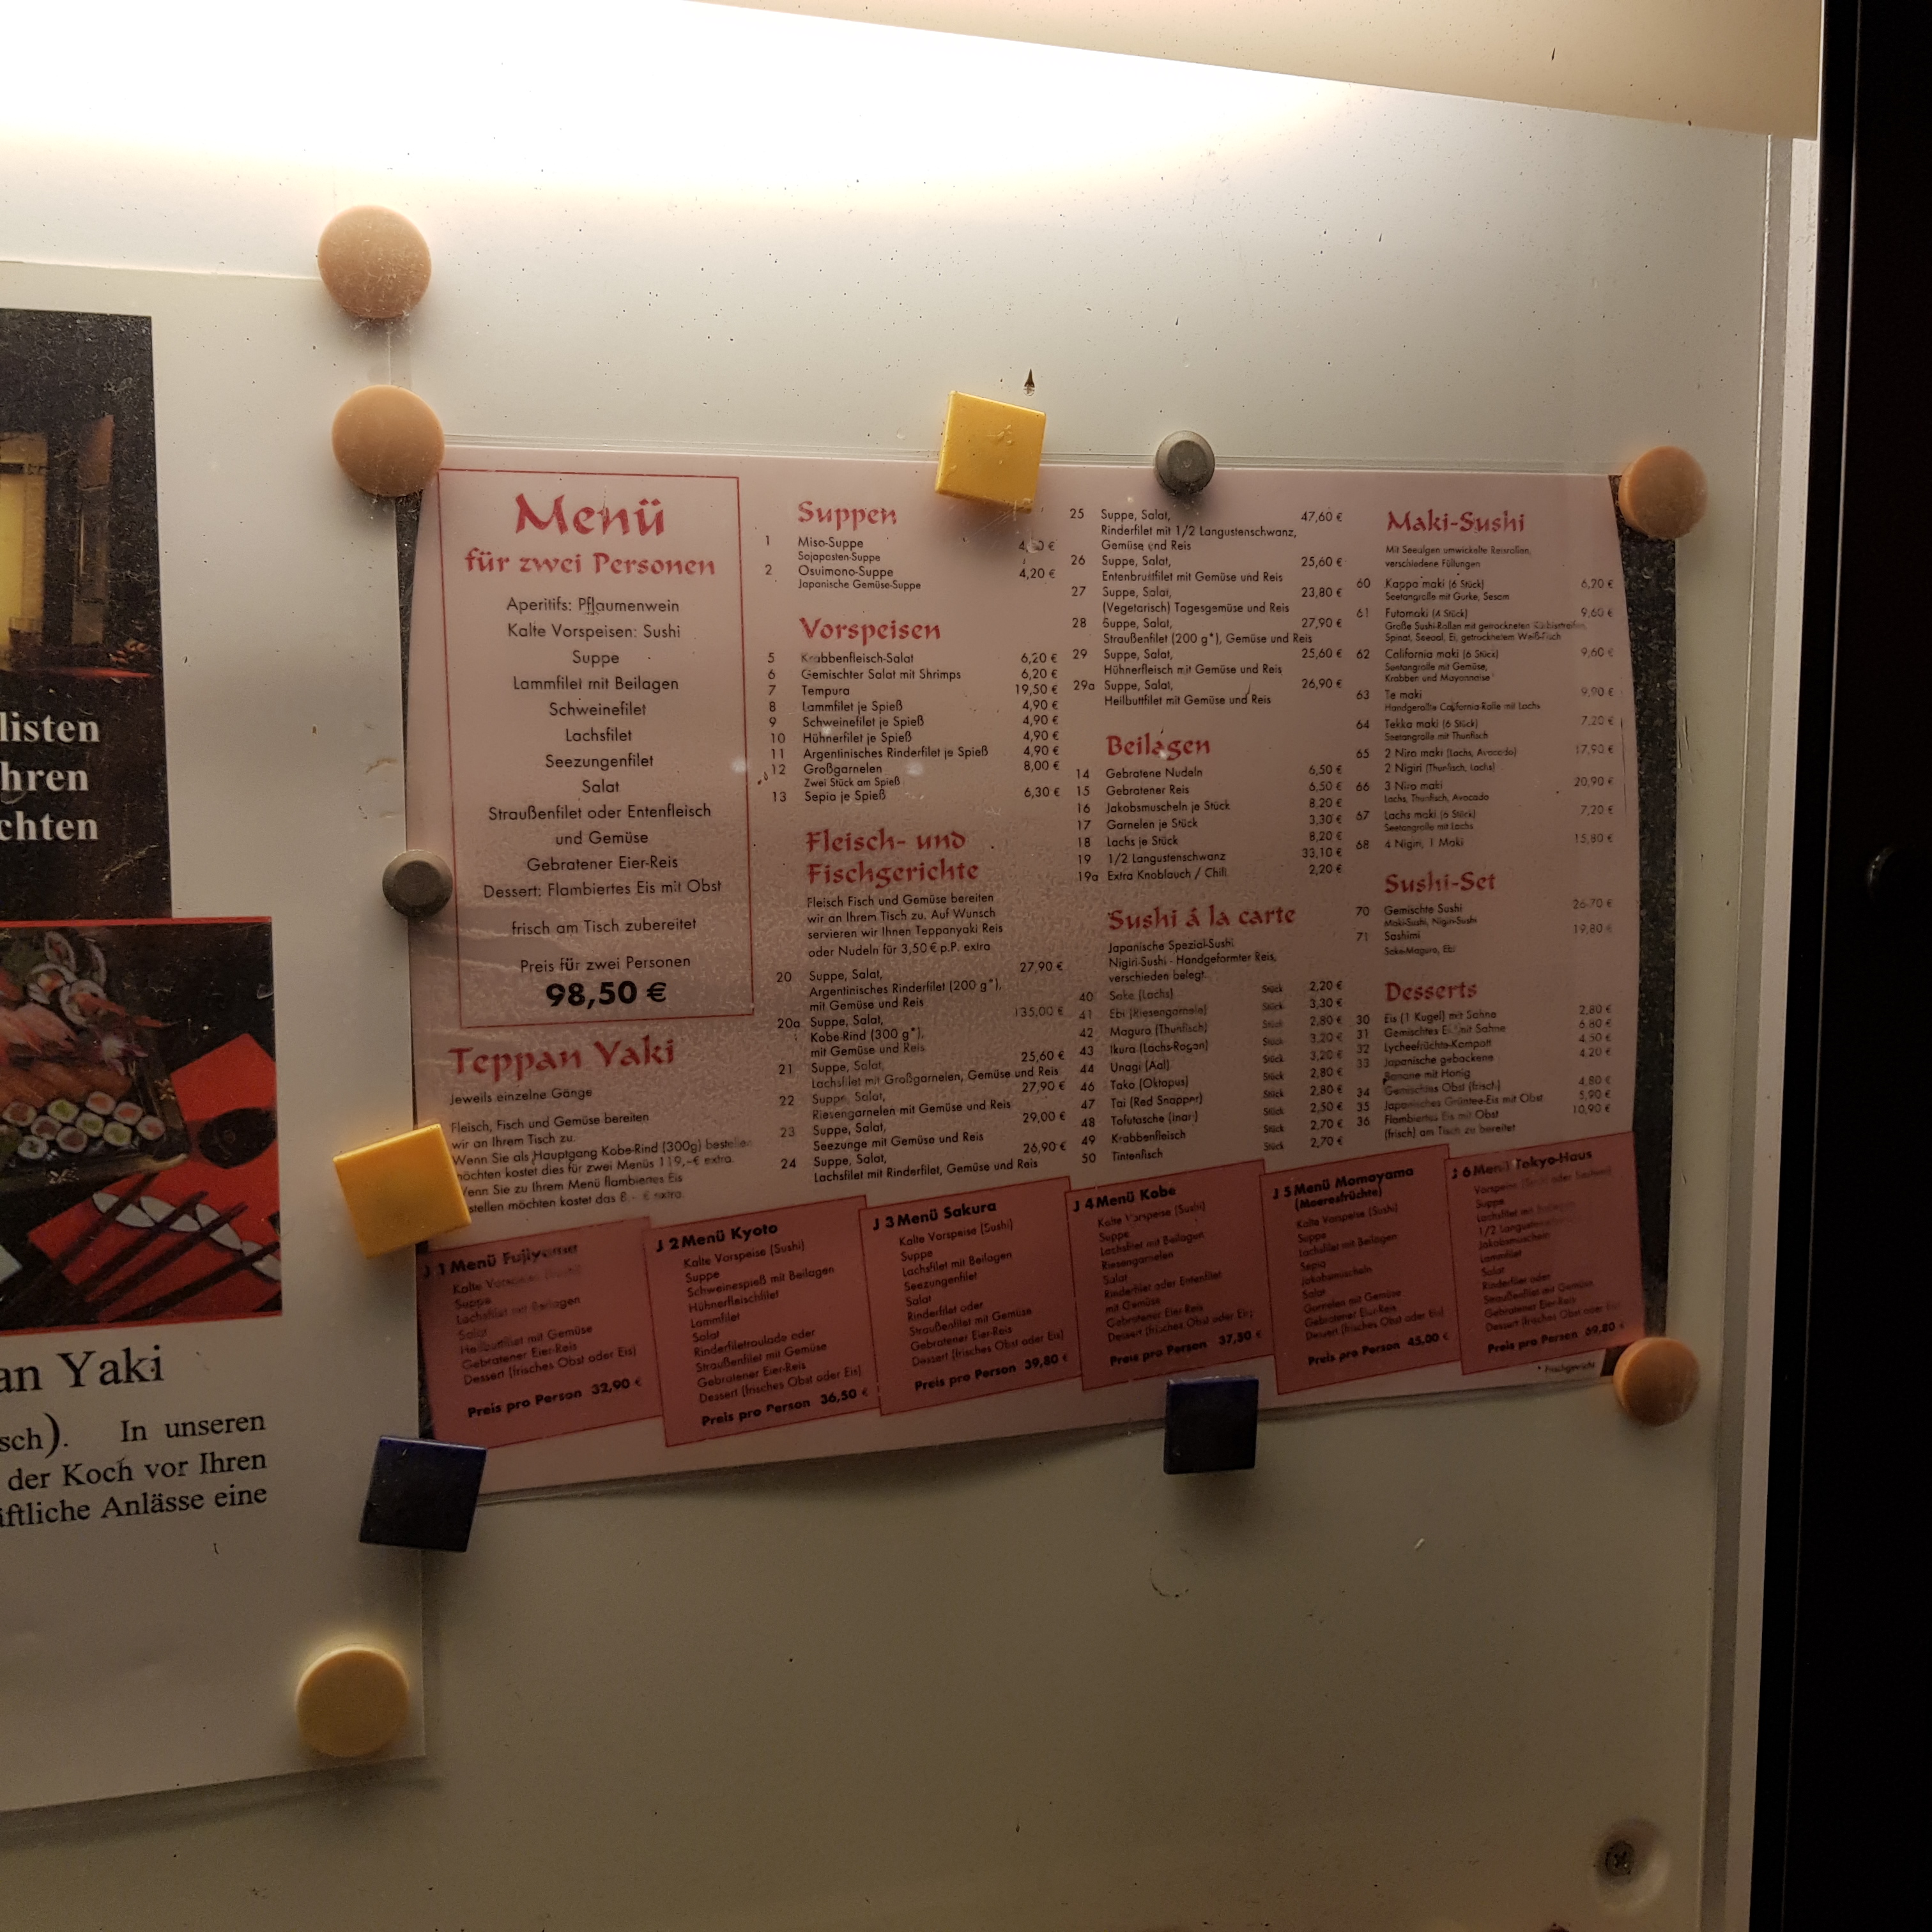 listen
hren
chten
an Yaki
sch). In unseren
der Koch vor Ihren
äftliche Anlässe eine
Menü
für zwei Personen
Aperitifs: Pflaumenwein
Kalte Vorspeisen: Sushi
Suppe
Lammfilet mit Beilagen
Schweinefilet
Lachsfilet
Seezungenfilet
Salat
Straußenfilet oder Entenfleisch
und Gemüse
Gebratener Eier-Reis
Dessert: Flambiertes Eis mit Obst
frisch am Tisch zubereitet
Preis für zwei Personen
98,50 €
Teppan Yaki
Jeweils einzelne Gänge
Fleisch, Fisch und Gemüse bereiten
wir an Ihrem Tisch zu.
Wenn Sie als Hauptgang Kobe-Rind (300g) bestellen
möchten kostet dies für zwei Menüs 119,-€ extra.
Wenn Sie zu Ihrem Menü flambiertes Eis
stellen möchten kostet das 8,- € extra.
Suppen
1 Miso-Suppe
Sojapasten-Suppe
2 Osuimono-Suppe 4,20 €
Japanische Gemüse-Suppe
Vorspeisen
5 Krabbenfleisch-Salat 6,20 €
6 Gemischter Salat mit Shrimps 6,20 €
7 Tempura 19,50 €
8 Lammfilet je Spieß 4,90 €
9 Schweinefilet je Spieß 4,90 €
10 Hühnerfilet je Spieß 4,90 €
11 Argentinisches Rinderfilet je Spieß 4,90 €
12 Großgarnelen 8,00 €
Zwei Stück am Spieß
13 Sepia je Spieß 6,30 €
Fleisch- und
Fischgerichte
Fleisch Fisch und Gemüse bereiten
wir an Ihrem Tisch zu. Auf Wunsch
servieren wir Ihnen Teppanyaki Reis
oder Nudeln für 3,50 € p.P. extra
20 Suppe, Salat, 27,90 €
Argentinisches Rinderfilet (200 g*),
mit Gemüse und Reis
20a Suppe, Salat, 135,00 €
Kobe-Rind (300 g*),
mit Gemüse und Reis
21 Suppe, Salat, 25,60 €
Lachsfilet mit Großgarnelen, Gemüse und Reis
22 Suppe, Salat, 27,90 €
Riesengarnelen mit Gemüse und Reis
23 Suppe, Salat, 29,00 €
Seezunge mit Gemüse und Reis
24 Suppe, Salat, 26,90 €
Lachsfilet mit Rinderfilet, Gemüse und Reis
25 Suppe, Salat, 47,60 €
Rinderfilet mit 1/2 Langustenschwanz,
Gemüse und Reis
26 Suppe, Salat, 25,60 €
Entenbrustfilet mit Gemüse und Reis
27 Suppe, Salat, 23,80 €
(Vegetarisch) Tagesgemüse und Reis
28 Suppe, Salat, 27,90 €
Straußenfilet (200 g*), Gemüse und Reis
29 Suppe, Salat, 25,60 €
Hühnerfleisch mit Gemüse und Reis
29a Suppe, Salat, 26,90 €
Heilbuttfilet mit Gemüse und Reis
Beilagen
14 Gebratene Nudeln 6,50 €
15 Gebratener Reis 6,50 €
16 Jakobsmuscheln je Stück 8,20 €
17 Garnelen je Stück 3,30 €
18 Lachs je Stück 8,20 €
19 1/2 Langustenschwanz 33,10 €
19a Extra Knoblauch / Chili 2,20 €
Sushi á la carte
Japanische Spezial-Sushi
Nigiri-Sushi - Handgeformter Reis,
verschieden belegt.
40 Sake (Lachs) Stück 2,20 €
41 Ebi (Riesengarnele) Stück 3,30 €
42 Maguro (Thunfisch) Stück 2,80 €
43 Ikura (Lachs-Rogen) Stück 3,20 €
44 Unagi (Aal) Stück 3,20 €
46 Tako (Oktopus) Stück 2,80 €
47 Tai (Red Snapper) Stück 2,80 €
48 Tofutasche (Inari) Stück 2,50 €
49 Krabbenfleisch Stück 2,70 €
50 Tintenfisch Stück 2,70 €
Maki-Sushi
Mit Seealgen umwickelte Reisrollen,
verschiedene Füllungen
60 Kappa maki (6 Stück) 6,20 €
Seetangrolle mit Gurke, Sesam
61 Futomaki (4 Stück) 9,60 €
Große Sushi-Rollen mit getrockneten
Spinat, Seeaal, Ei, getrocknetem Weiß-Fisch
62 California maki (6 Stück) 9,60 €
Seetangrolle mit Gemüse,
Krabben und Mayonnaise
63 Te maki 9,90 €
Handgerollte California-Rolle mit Lachs
64 Tekka maki (6 Stück) 7,20 €
Seetangrolle mit Thunfisch
65 2 Niro maki (Lachs, Avocado) 17,90 €
2 Nigiri (Thunfisch, Lachs)
66 3 Niro maki 20,90 €
Lachs, Thunfisch, Avocado
67 Lachs maki (6 Stück) 7,20 €
Seetangrolle mit Lachs
68 4 Nigiri, 1 Maki 15,80 €
Sushi-Set
70 Gemischte Sushi 26,70 €
Maki-Sushi, Nigiri-Sushi
71 Sashimi 19,80 €
Sake-Maguro, Ebi
Desserts
30 Eis (1 Kugel) mit Sahne 2,80 €
31 Gemischtes Eis mit Sahne 6,80 €
32 Lycheefrüchte-Kompott 4,50 €
33 Japanische gebackene 4,20 €
Banane mit Honig
34 Gemischtes Obst (frisch) 4,80 €
35 Japanisches Grüntee-Eis mit Obst 5,90 €
36 Flambiertes Eis mit Obst 10,90 €
(frisch) am Tisch zu bereitet
J 1 Menü
Kalte Vorspeise (Sushi)
Suppe
Lachsfilet mit Beilagen
Salat
Heilbuttfilet mit Gemüse
Gebratener Eier-Reis
Dessert (frisches Obst oder Eis)
Preis pro Person 32,90 €
J 2 Menü Kyoto
Kalte Vorspeise (Sushi)
Suppe
Schweinespieß mit Beilagen
Hühnerfleischfilet
Lammfilet
Salat
Rinderfiletroulade oder
Straußenfilet mit Gemüse
Gebratener Eier-Reis
Dessert (frisches Obst oder Eis)
Preis pro Person 36,50 €
J 3 Menü Sakura
Kalte Vorspeise (Sushi)
Suppe
Lachsfilet mit Beilagen
Seezungenfilet
Salat
Rinderfilet oder
Straußenfilet mit Gemüse
Gebratener Eier-Reis
Dessert (frisches Obst oder Eis)
Preis pro Person 39,80 €
J 4 Menü Kobe
Kalte Vorspeise (Sushi)
Suppe
Lachsfilet mit Beilagen
Riesengarnelen
Salat
Rinderfilet oder Entenfilet
mit Gemüse
Gebratener Eier-Reis
Dessert (frisches Obst oder Eis)
Preis pro Person 37,80 €
J 5 Menü Momoyama
(Meeresfrüchte)
Kalte Vorspeise (Sushi)
Suppe
Lachsfilet mit Beilagen
Sepia
Jakobsmuscheln
Salat
Garnelen mit Gemüse
Gebratener Eier-Reis
Dessert (frisches Obst oder Eis)
Preis pro Person 45,00 €
J 6 Menü Tokyo-Haus
Vorspeise
Suppe
Lachsfilet mit Beilagen
1/2 Langustenschwanz
Jakobsmuscheln
Lammfilet
Salat
Rinderfilet oder
Straußenfilet mit Gemüse
Gebratener Eier-Reis
Dessert (frisches Obst oder Eis)
Preis pro Person 59,80 €